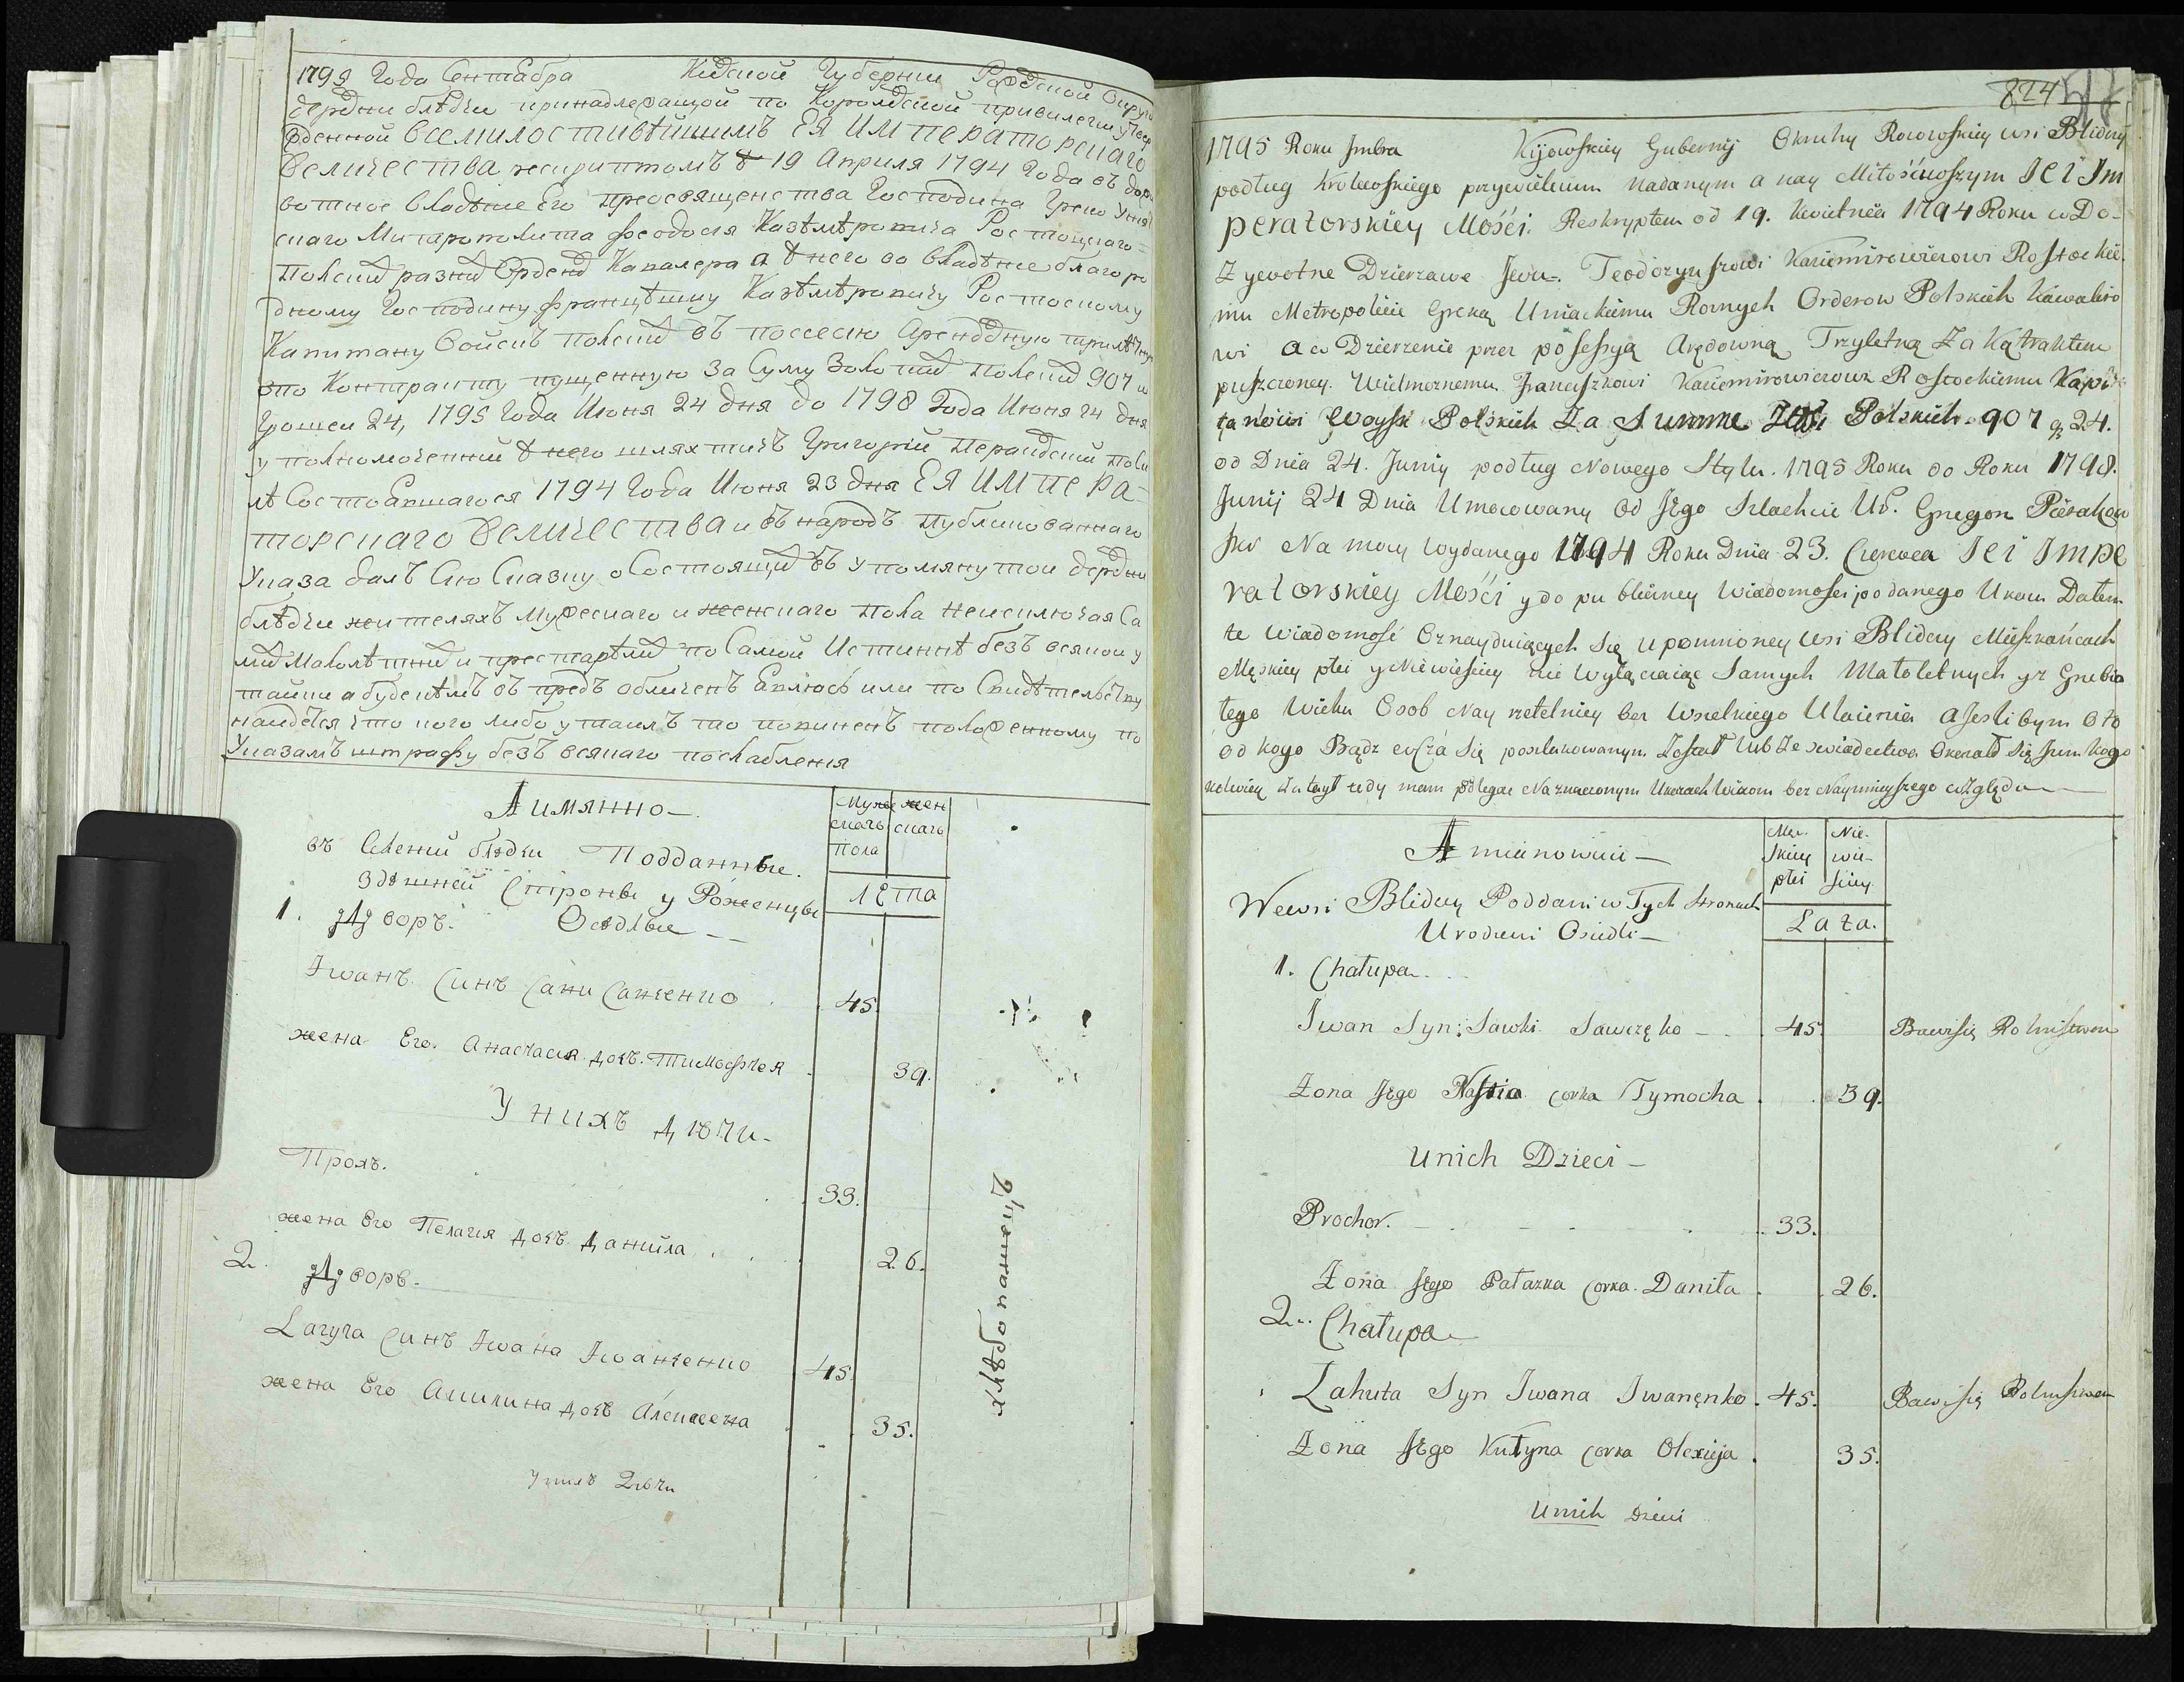 1795 Года Сентября Киевской Губернии Округи
деревни блѣдчи принадлежащой по Королевской привилегии
Всемилостивѣйшимъ ЕЯ ИМПЕРАТОРСКАГО
Величества рескриптомъ 19 Апреля 1794 Года въ
вотное владѣние Его преосвященства Господина Греко
скаго Митрополита феодосия Казѣмѣровича Ростоцкаго
Польских разних Орденов Кавалера а него во владѣние благоро
дному Господину францѣшку Казѣмѣровичу Ростоскому
Капитану Войскъ польских въ поссесию Арендовную
по Контракту пущенную За Суму Золотих Польских 907 и
Грошеи 24, 1795 Года Июня 24 дня до 1798 Года Июня 24 дня
уполномоченний него шляхтичъ Григорий
Состоявшагося 1794 Года Июня 23 дня ЕЯ ИМПЕРА-
ТОРСКАГО ВЕЛИЧЕСТВА и въ народъ Публикованнаго
Указа далъ Сию Сказку о Состоящих въ упомянутой деревни
блѣдчи жителяхъ Мужескаго и женскаго пола неисключая Са
мих Малолѣтних и престарѣлих по Самой Истиннѣ безъ всякой у
тайки а буде кѣмъ въ предъ обличенъ Явлюсь или по Свидѣтельству
найдется что кого либо утаилъ то повиненъ положенному по
Указамъ штрафу безъ всякаго послабления
А имянно
Муже скаго Пола
жен скаго
въ Селении блѣдчи Подданные.
здѣшней Стороны уроженцы
Лѣта
1. дворъ. Осѣдлые
Iванъ Синъ Савки Савченко 45.
жена Его Анастасия дочъ Тимофѣея 39.
У нихъ дѣти
Прохъ. 33.
жена Его Пелагия дочъ данила 26.
2. дворъ.
Лагута Синъ Iвана Iваненко 45
жена Его Акилина дочъ Алексеева 35.
У нихъ дѣти
хлѣбопашецъ
824
1795 Roku Kijowskiey Gubernij Okruhy wsi Blidczy
podług Krolewskiego przywilleium nadanym a nay Miłościwszym JEI Im
peratorskiey Mości Reskryptem od 19. Kwietnia 1794 Roku w Do-
żywotne Dzierzawe Teodozyuszowi Kazimirowiczowi Rostockie
mu Metropolicie Greko Uniackiemu Roznych Orderow Polskich Kawalero
wi a w Dzierzenie przez posessyą Arędowną Trzyletną Za Kątraktem
puszczoney Wielmoznemu Franciszkowi Kazimirowiczowi Rostockiemu Kapi
tanowi Woysk Polskich Za Summe Zł: Polskich 907 g 24.
od Dnia 24. Junij podług Nowego Stylu. 1795 Roku do Roku 1798.
Junij 24 Dnia Umocowany od Jego Szlachcic Ur. Gregori
Na mocy wydanego 1794 Roku Dnia 23. Czerwca JEI Impe
ratorskiey Mości y do publiczney Wiadomosci podanego Ukazu Datem
te Wiadomość Oznayduiących się upomnioney wsi Blidczy Mieszkańcach
Męskiey płci y Niewiesciey nie wyłączaiąc Samych Małoletnych yz
tego Wieku Osob Nay rzetelniey bez Wszelkiego Utaienia a Jeslibym Oto
od kogo Bądz się poszlakowanym Został lub Ze swiadectwa Okazało się kogo
kolwiek Zataył tedy mam podlegac Naznaczonym Ukazach Winom bez Naymnieyszego względu
A mianowicie
Męskiey płci
Niewiesciey
We wsi Blidczy Poddani w Tych Stronach
Urodzeni Osiedli
Lata.
1. Chałupa
Iwan Syn Sawki Sawczęko 45. Bawi się Rolnistwem
Zona Jego Nastia corka Tymocha 39.
Unich Dzieci
Prochor. 33.
Zona Jego Pałazka corka Daniła 26.
2. Chałupa
Łahuta Syn Iwana Iwanęnko 45. Bawi się Rolnistwem
Zona Jego Kułyna corka Olexieja 35.
Unich Dzieci